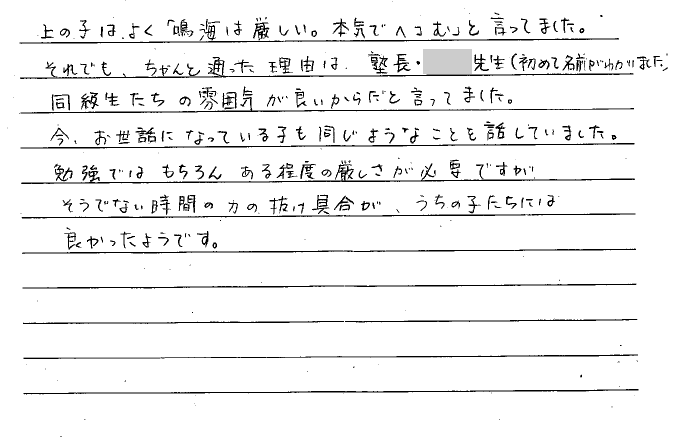 上の子は、よく「鳴海は厳しい。本気でへこむ」と言ってました。
それでも、ちゃんと通った理由は、塾長・先生(初めて名前がわかりました)
同級生たちの雰囲気が良いからだと言ってました。
今、お世話になっている子も同じようなことを話していました。
勉強ではもちろん ある程度の厳しさが必要ですが
そうでない時間の力の抜け具合が、うちの子たちには
良かったようです。